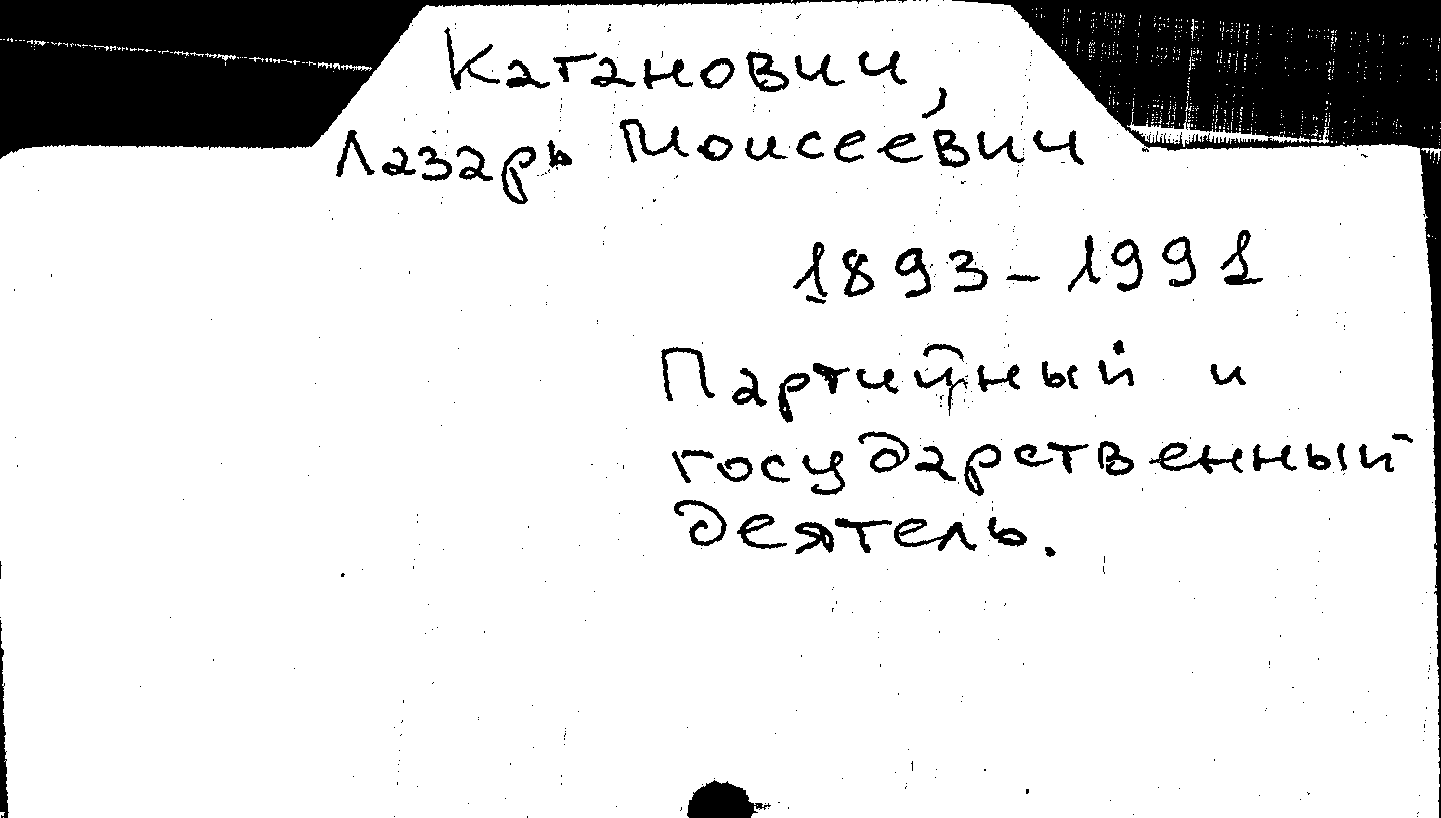 Каганович,
Лазарь Моисеевич
1893-1991
Партийный и
государственный
деятель.